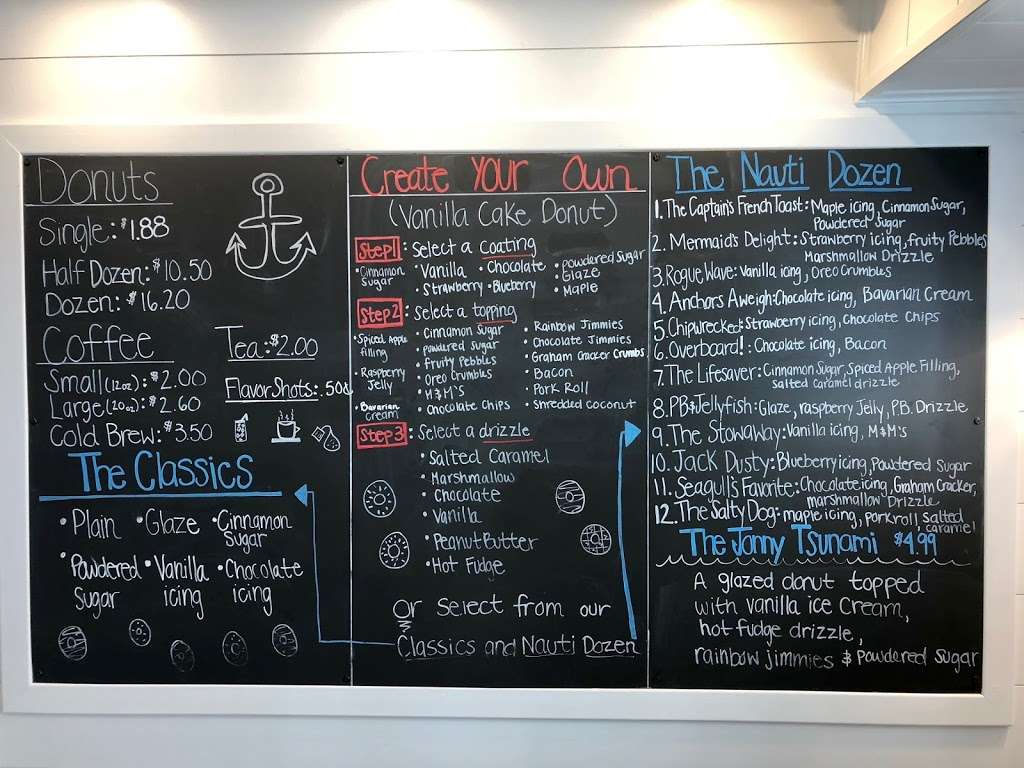 Donuts
Single: $1.88
Half Dozen: $10.50
Dozen: $16.20
Coffee
Small (12oz): $2.00
Large (20oz): $2.60
Cold Brew: $3.50
Tea: $2.00
Flavor Shots: .50¢
The Classics
• Plain • Glaze • Cinnamon Sugar
Powdered Sugar • Vanilla icing • Chocolate icing
Create Your Own
(Vanilla Cake Donut)
Step 1: Select a coating
• Cinnamon Sugar
• Vanilla • Chocolate
• Strawberry • Blueberry
• Powdered Sugar
• Glaze
• Maple
Step 2: Select a topping
• Spiced Apple filling
• Raspberry Jelly
• Bavarian Cream
• Cinnamon Sugar
• powdered Sugar
• fruity Pebbles
• Oreo Crumbles
• M&M'S
• Chocolate Chips
• Rainbow Jimmies
• Chocolate Jimmies
• Graham Cracker Crumbs
• Bacon
• Pork Roll
• Shredded Coconut
Step 3: Select a drizzle
• Salted Caramel
• Marshmallow
• Chocolate
• Vanilla
• Peanut Butter
• Hot Fudge
Or Select from our
Classics and Nauti Dozen
The Nauti Dozen
1. The Captain's French Toast: Maple icing, Cinnamon Sugar,
Powdered Sugar
2. Mermaid's Delight: Strawberry icing, fruity Pebbles
Marshmallow Drizzle
3. Rogue Wave: Vanilla icing, Oreo Crumbles
4. Anchors Aweigh: Chocolate icing, Bavarian Cream
5. Chipwrecked: Strawberry icing, Chocolate Chips
6. Overboard!: Chocolate icing, Bacon
7. The Lifesaver: Cinnamon Sugar, Spiced Apple Filling,
Salted Caramel drizzle
8. PB&Jellyfish: Glaze, raspberry Jelly, P.B. Drizzle
9. The Stowaway: Vanilla icing, M&M's
10. Jack Dusty: Blueberry icing, Powdered Sugar
11. Seagull's Favorite: Chocolate icing, Graham Cracker,
marshmallow Drizzle
12. The Salty Dog: maple icing, pork roll, salted caramel
The Jonny Tsunami $4.99
A glazed donut topped
with vanilla ice Cream,
hot fudge drizzle,
rainbow jimmies & Powdered Sugar